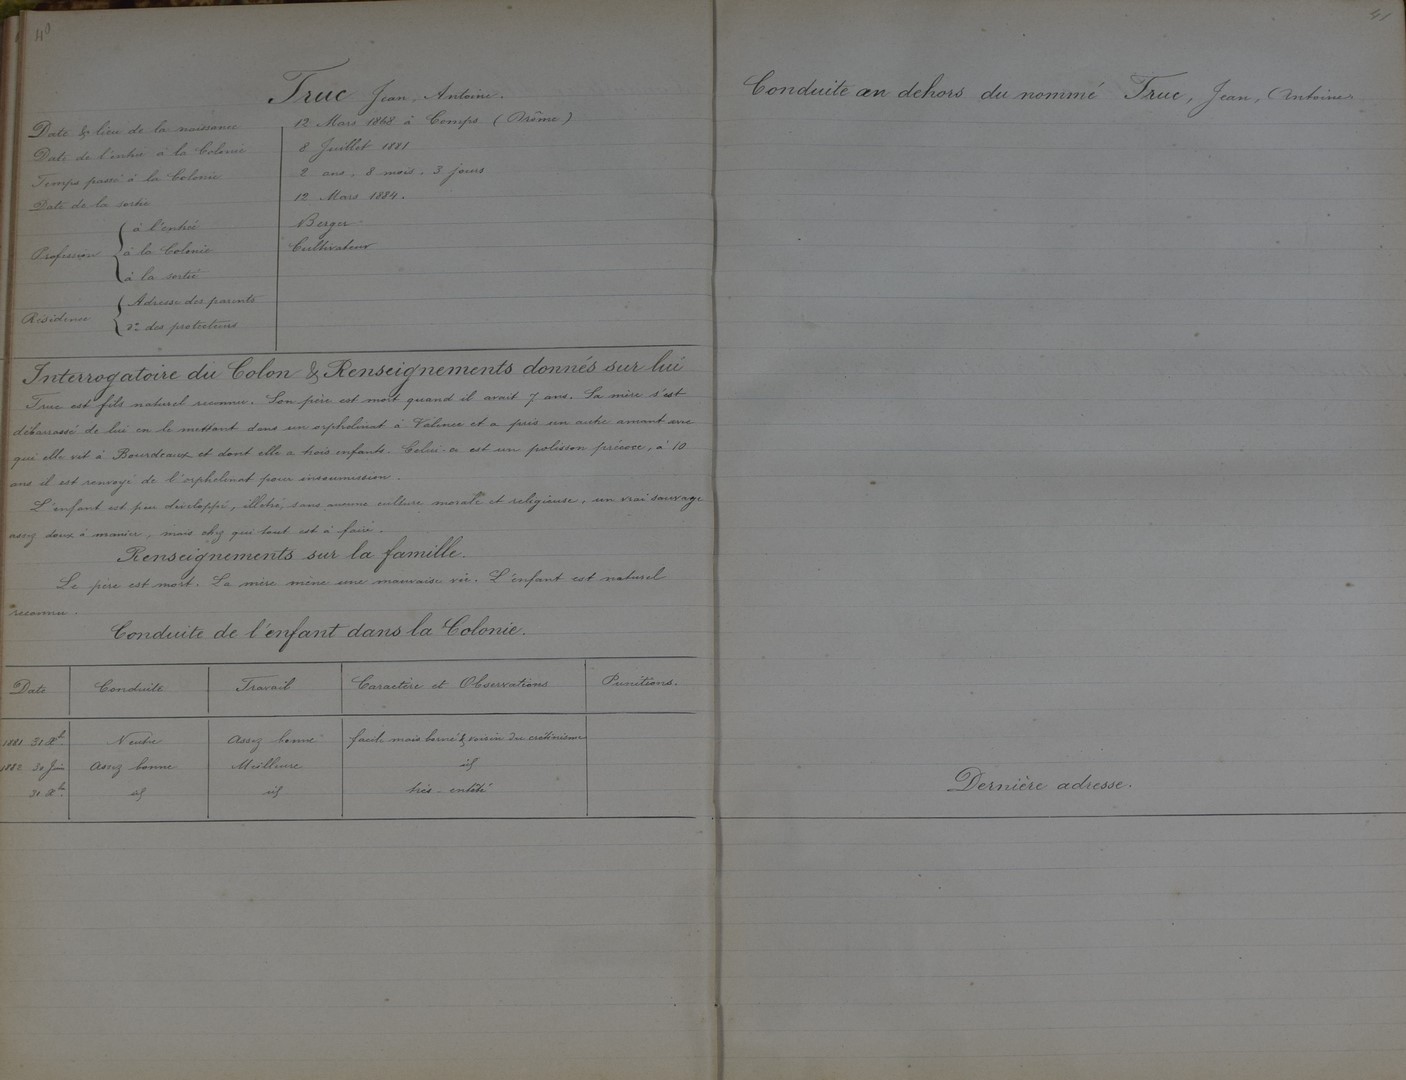 40
Truc Jean, Antoine.
Date & lieu de la naissance 12 Mars 1868 à Comps (Drôme)
Date de l'entrée à la Colonie 8 Juillet 1881
Temps passé à la Colonie 2 ans, 8 mois, 3 jours
Date de la sortie 12 Mars 1884.
Profession
à l'entrée Berger
à la Colonie Cultivateur
à la sortie
Résidence
Adresse des parents
do des protecteurs
Interrogatoire du Colon & Renseignements donnés sur lui
Truc est fils naturel reconnu. Son père est mort quand il avait 7 ans. Sa mère s'est
débarrassé de lui en le mettant dans un orphelinat à Valence et a pris un autre amant avec
qui elle vit à Bourdeaux et dont elle a trois enfants. Celui-ci est un polisson précoce, à 10
ans il est renvoyé de l'orphelinat pour insoumission.
L'enfant est peu développé, illettré, sans aucune culture morale et religieuse, un vrai sauvage
assez doux à manier, mais chez qui tout est à faire.
Renseignements sur la famille.
Le père est mort. La mère mène une mauvaise vie. L'enfant est naturel
reconnu.
Conduite de l'enfant dans la Colonie.
Date Conduite Travail Caractère et Observations Punitions.
1881 31 Xbre Neutre Assez bonne facile mais borné & voisin du crétinisme
1882 30 Juin Assez bonne Meilleure id
31 Xbre id id très-entêté
41
Conduite en dehors du nommé Truc, Jean, Antoine.
Dernière adresse.